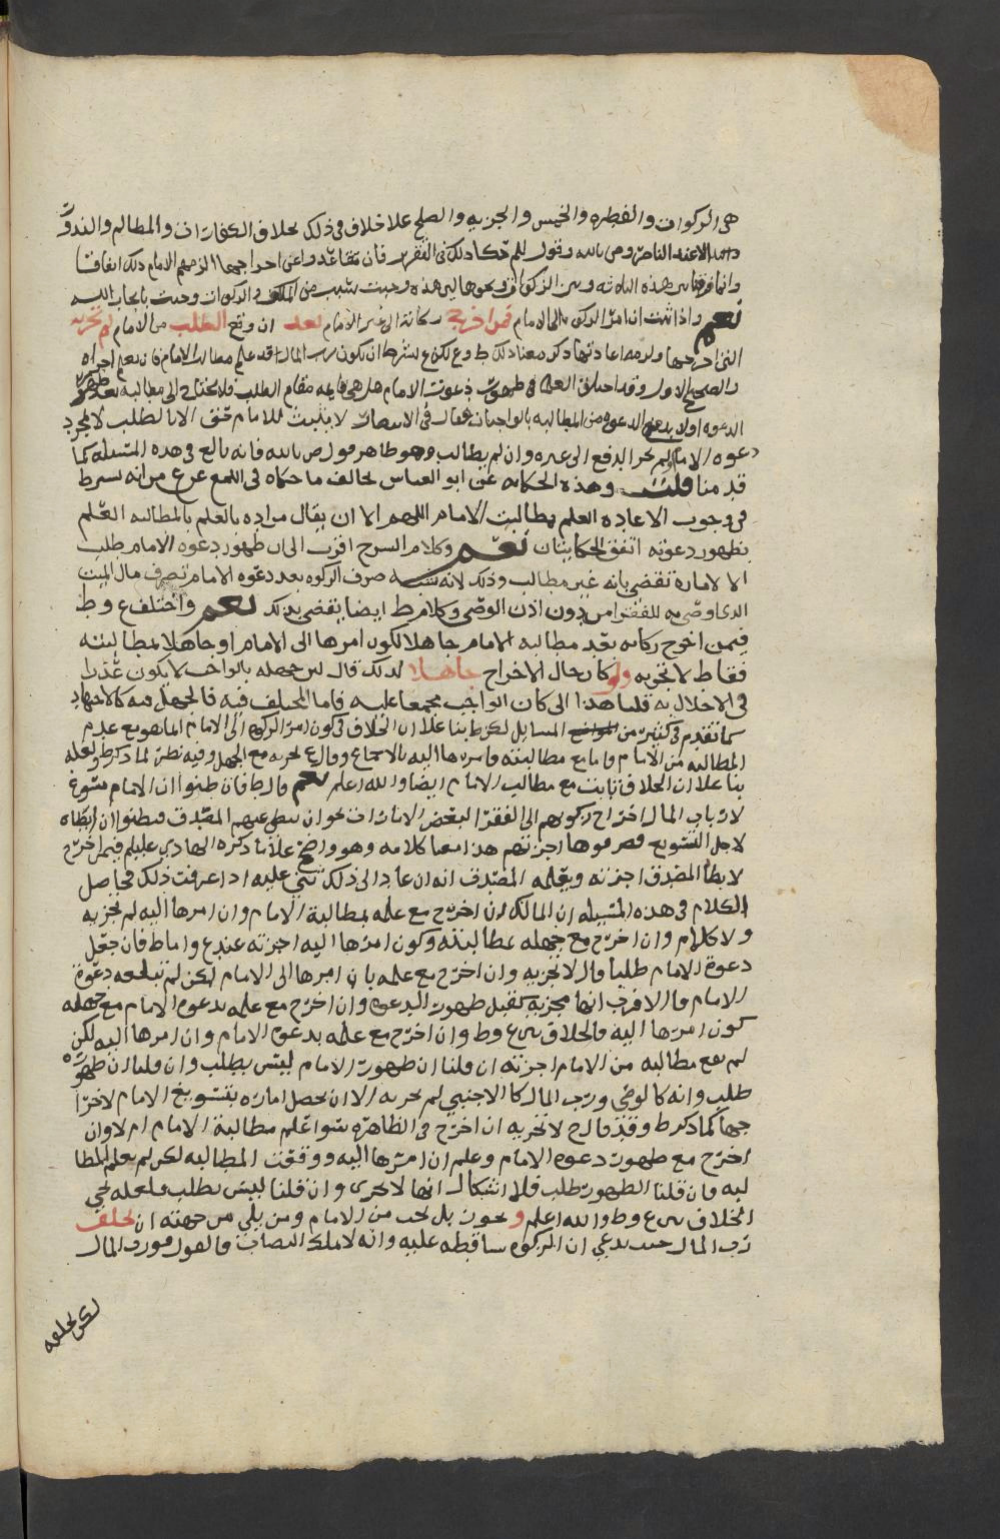 هي الزكوات والفطره والخمس والجزيه والصلح علا خلاف في ذلك بخلاف الكفارات والمظالم والنذور
الا عند الناصر وص بالله وقول للم حكا ذلك في التقرير فان
وانما فرق بين هذه الثلاثه وبين الزكوات ونحوها لان هذه وجبت بسبب من المكلف والزكوات وجبت بايجاب الله
نعم واذا ثبت ان امر الزكوه الى الامام فمن اخرج زكاته الى غير الامام بعد ان وقع الطلب من الامام لم تجزيه
التي اخرجها ولزمه اعادتها ذكر معنا ذلك ط وع لكن ع يشترط ان يكون رب المال قد علم مطالبة الامام فان لم يعلم اجزاه
والصحيح الاول وقد اختلف العلما في ظهور دعوت الامام هل هي قايمه مقام الطلب فلا يحتاج الى مطالبه بعد ظهور
الدعوه او لا بد مع الدعوه من المطالبه بالواجبات فقال في الانتصار لا يثبت للامام حق الا بالطلب لا بمجرد
دعوه الامام لم يجز الدفع الى غيره وان لم يطالب وهو ظاهر قول ص بالله فانه بالغ في هذه المسئله كما
قدمنا قلت وهذه الحكايه عن ابو العباس تخالف ما حكاه في اللمع عن ع من انه يشرط
في وجوب الاعاده العلم بمطالبت الامام اللهم الا ان يقال مراده بالعلم بالمطالبه العلم
بظهور دعوته اتفق الحكايتان نعم وكلام الشرح اقرب الى ان ظهور دعوه الامام طلب
الا لامارة تقضي بانه غير مطالب وذلك لانه شبه صرف الزكوه بعد دعوه الامام بتصرف مال الميت
الذي اوصى به للفقرا من دون اذن الوصي وكلام ط ايضا يقضي بذلك نعم واختلف ع وط
فيمن اخرج زكاته بعد مطالبه الامام جاهلا لكون امرها الى الامام او جاهلا لمطالبته
فقال ط لا تجزيه ولو كان حال الاخراج جاهلا لذلك قال لان جهله بالواجب لا يكون عذرا
في الاخلال به قلنا هذا اذا كان الواجب مجمعا عليه فاما المختلف فيه فالجهل فيه كالاجتهاد
كما تقدم في كثير من المسايل لكن ط بنا علا ان الخلاف في كون امر الزكوه الى الامام انما هو مع عدم
المطالبه من الامام فاما مع مطالبته فامرها اليه بالاجماع وقال ع تجزيه مع الجهل وفيه نظر لما ذكر ط ولعله
بنا علا ان الخلاف ثابت مع مطالب الامام ايضا والله اعلم نعم قال ط فان ظنوا ان الامام مسوغ
لارباب المال اخراج زكوتهم الى الفقرا لبعض الامارات نحو ان يبطي عنهم المصدق فيظنوا ان ابطاه
لاجل التسويغ فصرفوها اجزتهم هذا معنا كلامه وهو واضح علا ما ذكره الهادي عليلم فيمن اخرج
لابطا المصدق اجزته ويعلمه المصدق انه ان عاد الى ذلك ثني عليه اذا عرفت ذلك فحاصل
الكلام في هذه المسئله ان المالك ان اخرج مع علمه بمطالبة الامام وان امرها اليه لم تجزيه
ولا كلام وان اخرج مع جهله بمطالبته وكون امرها اليه اجزته عند ع واما ط فان جعل
دعوة الامام طلبا قال لا تجزيه وان اخرج مع علمه بان امرها الى الامام لكن لم تبلغه دعوة
الامام فالاقرب انها مجزيه كقبل ظهور الدعوه وان اخرج مع علمه بدعوه الامام مع جهله
كون امرها اليه فالخلاف بين ع وط وان اخرج مع علمه بدعوه الامام وان امرها اليه لكن
لم تقع مطالبه من الامام اجزته ان قلنا ان ظهور الامام ليس بطلب وان قلنا ان ظهوره
طلب وانه كالوصي ورب المال كالاجنبي لم تجزيه الا ان يحصل اماره بتسويغ الامام لاخرا
جها كما ذكر ط وقد قال ح لا تجزيه ان اخرج في الظاهره سوا علم مطالبة الامام ام لا وان
اخرج مع ظهور دعوه الامام وعلم ان امرها اليه ووقعت المطالبه لكن لم يعلم المطا
لبه فان قلنا الظهور طلب فلا اشكال انها لا تجزي وان قلنا ليس بطلب فلعله يجي
الخلاف بين ع وط والله اعلم ويجوز بل يجب من الامام ومن يلي من جهته ان يحلف
رب المال حيث يدعي ان الزكوه ساقطه عليه وانه لا ملك النصاب فالقول قول رب المال
لكن يحلفه